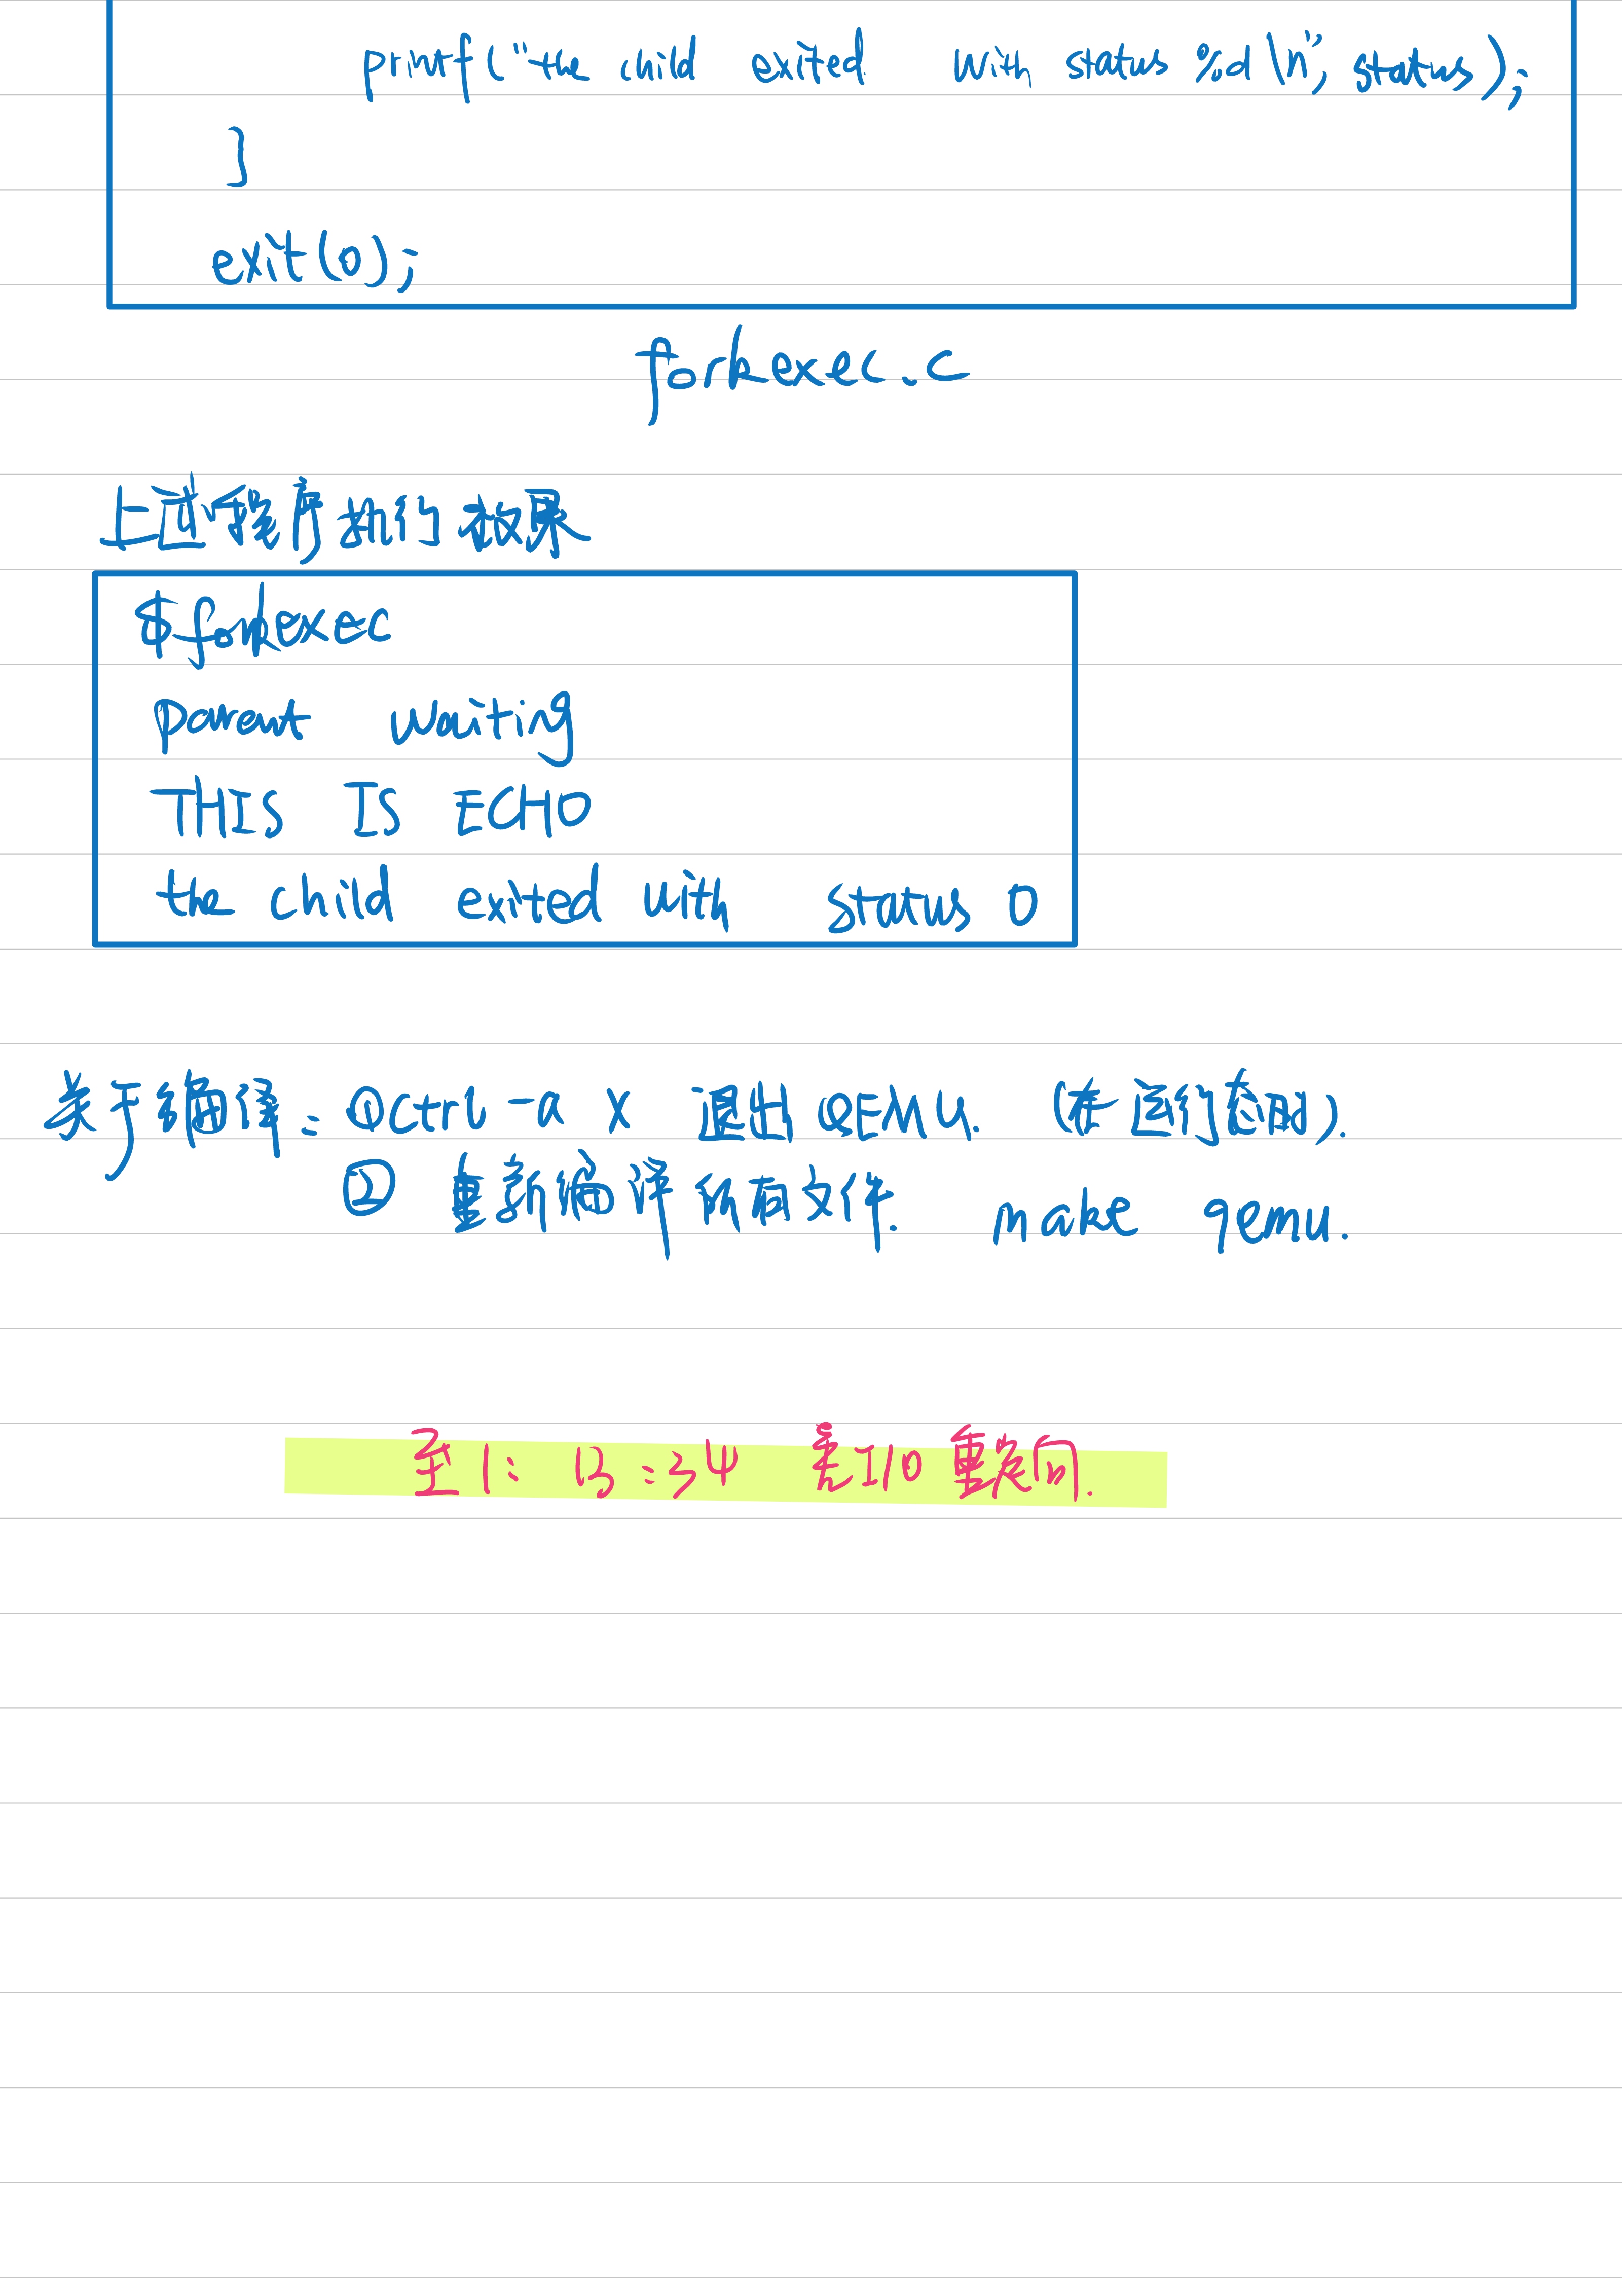 printf("the child exited with status %d\n", status);
}
exit(0);
forkexec.c
上述程序执行效果
$forkexec
parent waiting
THIS IS ECHO
the child exited with status 0
关于编译：①Ctrl-a x 退出QEMU. (在运行态时).
② 重新编译所有文件. make qemu.
至1: 13:34 看I/O重定向.